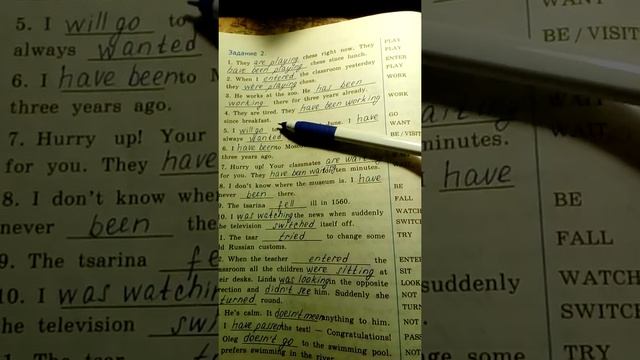 Задание 2.
1. They are playing chess right now. They PLAY
have been playing chess since lunch. PLAY
2. When I entered the classroom yesterday ENTER
they were playing chess. PLAY
3. He works at the zoo. He has been WORK
working there for three years already.
4. They are tired. They have been working WORK
since breakfast.
5. I will go to June. I have GO
always wanted WANT
6. I have been to BE / VISIT
three years ago.
7. Hurry up! Your classmates are
for you. They have been ten minutes.
8. I don't know where the museum is. I have
never been there. BE
9. The tsarina fell ill in 1560. FALL
10. I was watching the news when suddenly WATCH
the television switched itself off. SWITCH
1. The tsar tried to change some TRY
ld Russian customs.
2. When the teacher entered the ENTER
assroom all the children were sitting at SIT
eir desks. Linda was looking in the opposite LOOK
rection and didn't see him. Suddenly she NOT
turned round. TURN
He's calm. It doesn't mean anything to him. NOT
I have passed the test! — Congratulations! PASS
Oleg doesn't go to the swimming pool. NOT
prefers swimming in the river.
5. I will go to
always wanted
6. I have been to
three years ago.
7. Hurry up! Your
for you. They have
8. I don't know
never been
9. The tsarina
10. I was watching
he television
1. The tsar
WANT
BE / VISIT
minutes.
have
BE
FALL
suddenly WATCH
SWITCH
TRY
change some